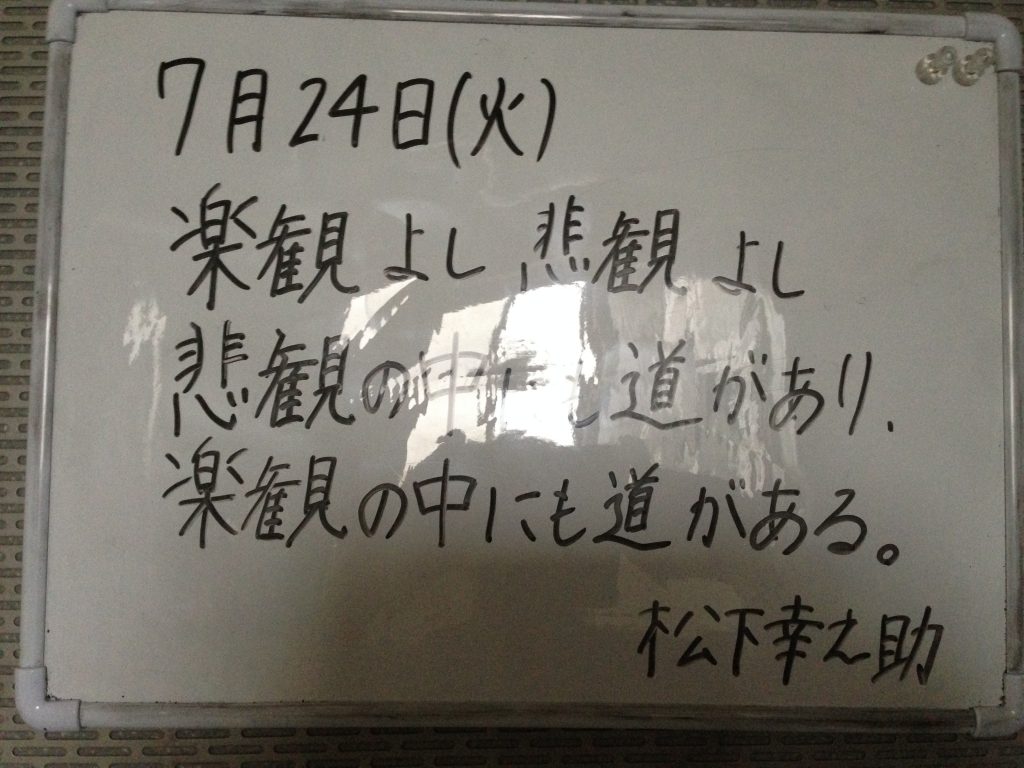 7月24日(火)
楽観よし 悲観よし
悲観の中にも道があり、
楽観の中にも道がある。
松下幸之助